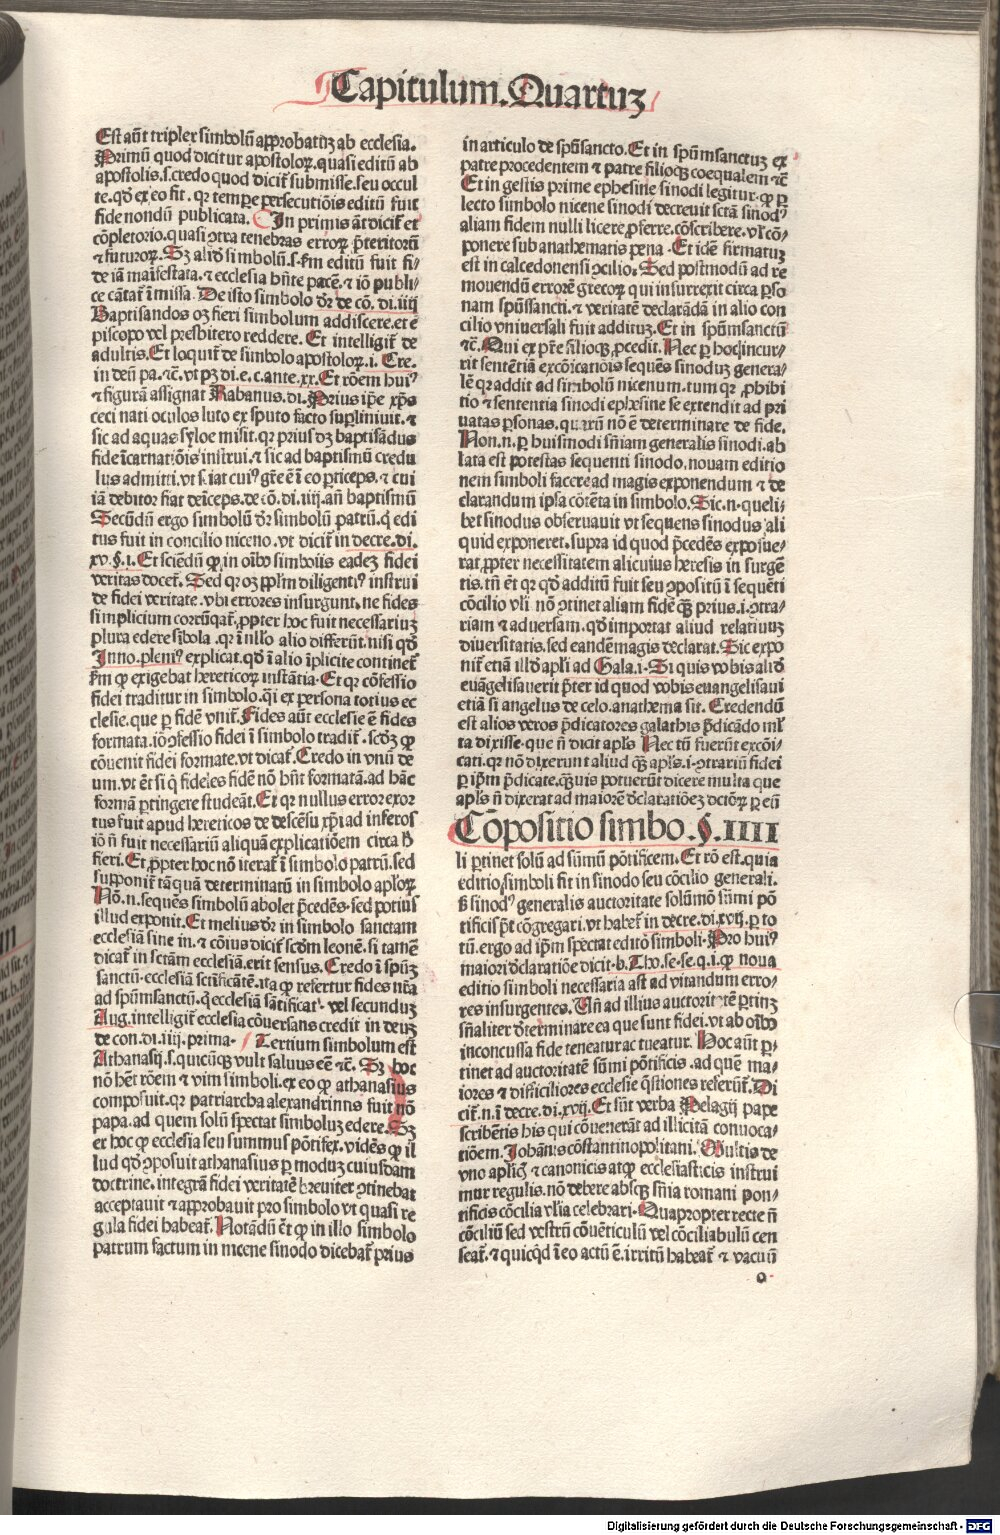 Capitulum. Quartuz
Est aūt triplex simbolū approbatuz ab ecclesia.
Primū quod dicitur apostoloꝝ. quasi editū ab
apostolis. s. credo quod dicit̄ submisse. seu occul
te. qd̄ ex eo fit. qꝛ tempore persecutiōis editū fuit
fide nondū publicata. In primis āt dicit̄ et
cōpletorio. quasi ꝯtra tenebras erroꝝ p̄teritorū
⁊ futuroꝝ. Sꝫ alid̓ simbolū. s. fm editū fuit fi⸗
de iā maīfestata. ⁊ ecclesia hn̄te pacē. ⁊ iō publi⸗
ce cātat̄ ī missa. De isto simbolo dr̄ de cō. di. iiij
Baptisandos oꝫ fieri simbolum addiscere. et e
piscopo vel presbitero reddere. Et intelligit̄ de
adultis. Et loquit̄ de simbolo apostoloꝝ. i. Cre.
in deū pa. ⁊c̄. vt pꝫ di. e. c. ante. xx. Et rōem huiꝰ
⁊ figurā assignat Rabanus. di. Prius ip̄e xp̄s
ceci nati oculos luto ex sputo facto supliniuit. ⁊
sic ad aquas syloe misit. qꝛ prius dꝫ baptisādus
fide īcarnatiōis instrui. ⁊ sic ad baptismū credu
lus admitti. vt sciat cuiꝰ gr̄e ē ī eo ꝑticeps. ⁊ cui
iā debitoꝛ fiat deīceps. de cō. di. iiij. añ baptismū
Secūdū ergo simbolū dr̄ simbolū patrū. qd̓ edi
tus fuit in concilio niceno. vt dicit̄ in decre. di.
xv. §. i. Et sciēdū ꝙ in oīb̓o simbolis eadeꝫ fidei
veritas docet̄. Sed qꝛ oꝫ pp̄lm diligentiꝰ instrui
de fidei veritate. vbi errores insurgunt. ne fides
simplicium corrūpat̄. ꝓpter hoc fuit necessariuz
plura edere sībola. qꝛ ī nullo alio differūt. nisi qd̓
Inno. pleniꝰ explicat. qd̓ ī alio īplicite continet̄
fm ꝙ exigebat hereticoꝝ instātia. Et qꝛ cōfessio
fidei traditur in simbolo. q̄si ex persona totius ec
clesie. que p fidē vnit̄. Fides aūt ecclesie ē fides
formata. iō ꝯfessio fidei ī simbolo tradit̄. scdꝫ ꝙ
cōuenit fidei formate. vt dicat̄. Credo in vnū de
um. vt ēt si q̄ fideles fidē nō hn̄t formatā. ad hāc
formā ꝑtingere studeāt. Et qꝛ nullus error exor
tus fuit apud hereticos de descēsu xp̄i ad inferos
iō ñ fuit necessariū aliquā explicatiōem circa h̓
fieri. Et ꝓpter hoc nō iterat̄ ī simbolo patrū. sed
supponit̄ tāquā determinatū in simbolo apl̄oꝝ
Nō. n. sequēs simbolū abolet p̄cedēs. sed potius
illud exponit. Et melius dr̄ in simbolo sanctam
ecclesiā sine in. ⁊ cōius dicit̄ scdm leonē. si tamē
dicat̄ in sctām ecclesiā. erit sensus. Credo ī spūꝫ
sanctū. ecclesiā sctificātē. ita ꝙ refertur fides nr̄a
ad spūmsanctū. q̄ ecclesiā sātificat. vel secunduz
Aug. intelligit̄ ecclesia cōuersans credit in deuz
de con. di. iiij. prima. Tertium simbolum est
Athanasij. s. quicūqꝫ vult saluus eē ⁊c̄. Sꝫ hoc
nō hēt rōem ⁊ vim simboli. ex eo ꝙ athanasius
composuit. qꝛ patriarcha alexandrinus fuit nō
papa. ad quem solū spectat simboluz edere. Sꝫ
ex hoc ꝙ ecclesia seu summus pōtifex. vidēs ꝙ il
lud qd̓ ꝯposuit athanasius p moduꝫ cuiusdam
doctrine. integrā fidei veritatē breuiter ꝯtinebat
acceptauit ⁊ approbauit pro simbolo vt quasi re
gula fidei habeat̄. Notādū ēt ꝙ in illo simbolo
patrum factum in nicene sinodo dicebat̄ prius
in articulo de spūsancto. Et in spūmsanctuz ex
patre procedentem ⁊ patre filioqꝫ coequalem ⁊c̄
Et in gestis prime ephesine sinodi legitur. ꝙ ꝑ
lecto simbolo nicene sinodi decreuit sctā sinodꝰ
aliam fidem nulli licere ꝓferre. cōscribere. vl̄ cō⸗
ponere sub anathematis pena. Et idē firmatuz
est in calcedonensi ꝯcilio. Sed postmodū ad re
mouendū errorē grecoꝝ qui insurrexit circa ꝑso
nam spūssancti. ⁊ veritatē declarādā in alio con
cilio vniuersali fuit addituꝫ. Et in spūmsanctū
⁊c̄. Qui ex pr̄e filioqꝫ ꝓcedit. Nec ꝑ hoc incur⸗
rit sentētiā excōicatiōis sequēs sinoduꝫ genera⸗
lē qꝛ addit ad simbolū nicenum. tum qꝛ ꝓhibi
tio ⁊ sententia sinodi ephesine se extendit ad pri
uatas ꝑsonas. quarū nō ē determinare de fide.
Non. n. ꝑ huiusmodi sniam generalis sinodi. ab
lata est potestas sequenti sinodo. nouam editio
nem simboli faccre ad magis exponendum ⁊ de
clarandum ipsa cōtēta in simbolo. Sic. n. queli⸗
bet sinodus obseruauit vt sequens sinodus ali
quid exponeret. supra id quod p̄cedēs exposue⸗
rat. ꝓpter necessitatem alicuius heresis in surgē
tis. tn̄ ēt qꝛ qd̓ additū fuit seu ꝯpositū ī sequēti
cōcilio vli nō ꝯtinet aliam fidē qꝫ̄ prius. i. ꝯtra⸗
riam ⁊ aduersam. qd̓ importat aliud relatiuuz
diuersitatis. sed eandē magis declarat. Sic expo
nit̄ etiā illd̓ apl̄i ad Gala. i. Si quis vobis alid̓
euāgelisauerit p̄ter id quod vobis euangelisaui
etiā si angelus de celo. anathema sit. Credendū
est alios veros p̄dicatores galathis p̄dicādo ml̄
ta dixisse. que ñ dicit apl̄s Nec tn̄ fuerūt excōi⸗
cati. qꝛ nō dixerunt aliud qꝫ̄ apl̄s. i. ꝯtrariū fidei
ꝑ ip̄m p̄dicate. qꝫ̄uis potuerūt dicere multa que
apl̄s ñ dixerat ad maiorē d̓claratiōeꝫ dctōꝝ ꝑ eū
Cōpositio simbo. §. IIII
li ꝑtinet solū ad sūmū pōtificem. Et rō est. quia
editio simboli fit in sinodo seu cōcilio generali.
ß sinodꝰ generalis auctoritate solūmō sūmi pō
tificis pōt cōgregari. vt habet̄ in decre. di. xvij. ꝑ to
tū. ergo ad ip̄m spectat editō simboli. Pro huiꝰ
maiori d̓claratiōe dicit. b. Tho. se. se. q. i. ꝙ noua
editio simboli necessaria ast ad vitandum erro⸗
res insurgentes. Un̄ ad illius auctoritatē ꝑtinꝫ
sn̄aliter d̓terminare ea que sunt fidei. vt ab oīb̓o
inconcussa fide teneatur ac tueatur. Hoc aūt ꝑ⸗
tinet ad auctoritatē sūmi pōtificis. ad quē ma⸗
iores ⁊ difficiliores ecclesie q̄stiones referūt̄. Di
cit̄. n. ī decre. di. xvij. Et sūt verba Pelagij pape
scribētis his qui cōuenerāt ad illicitā conuoca⸗
tiōem. Johānis cōstantinopolitani. Multis de
vno aplicꝭ ⁊ canonicis atqꝫ ecclesiasticis instrui
mur regulis. nō debere absqꝫ snīa romani pon⸗
tificis cōcilia vlia celebrari. Quapropter recte ñ
cōciliū sed vestrū cōuēticulū vel cōciliabulū cen
seat̄. ⁊ quicqd̓ ī eo actū ē. irritū habeat̄ ⁊ vacuū
o
Digitalisierung gefördert durch die Deutsche Forschungsgemeinschaft - DFG